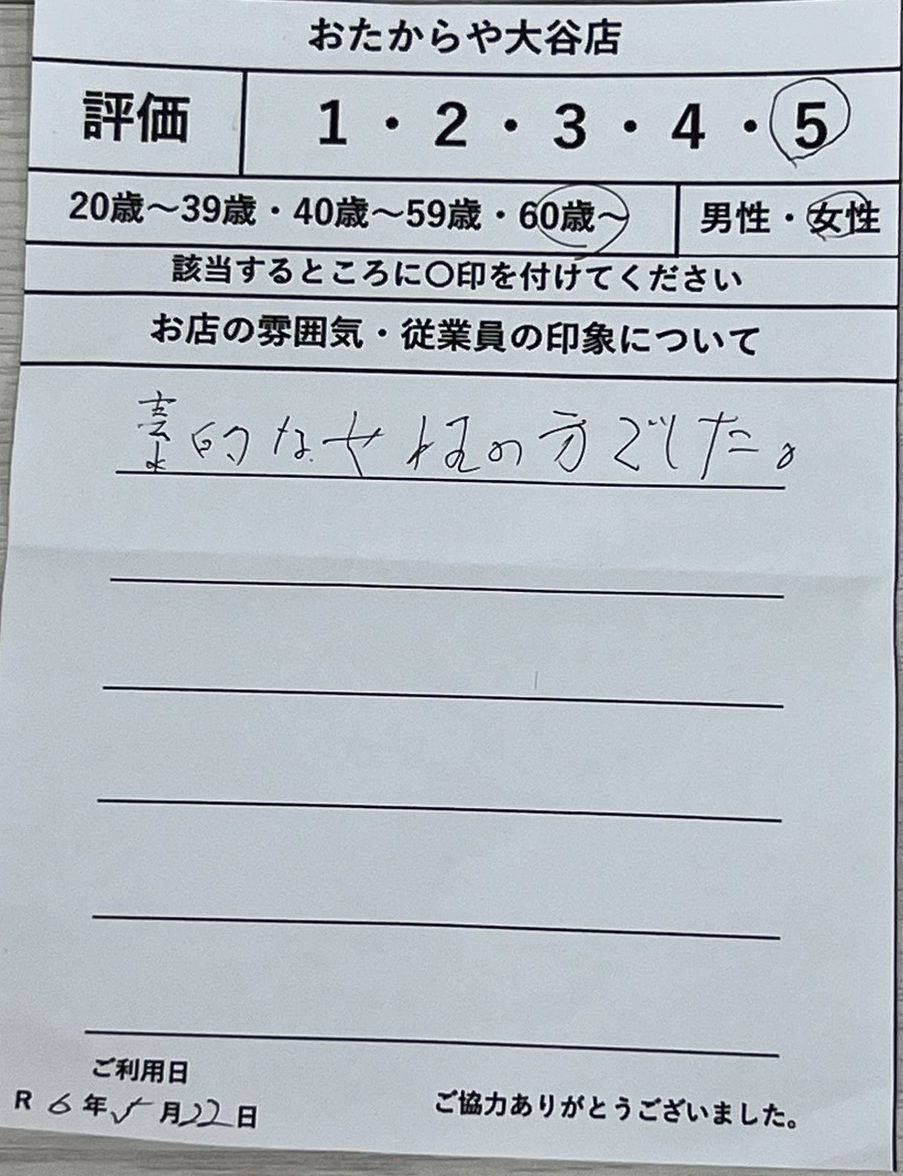 おたからや大谷店
評価 1・2・3・4・5
20歳～39歳・40歳～59歳・60歳～ 男性・女性
該当するところに〇印を付けてください
お店の雰囲気・従業員の印象について
素的な女性の方でした。
ご利用日
R 6年5月22日
ご協力ありがとうございました。